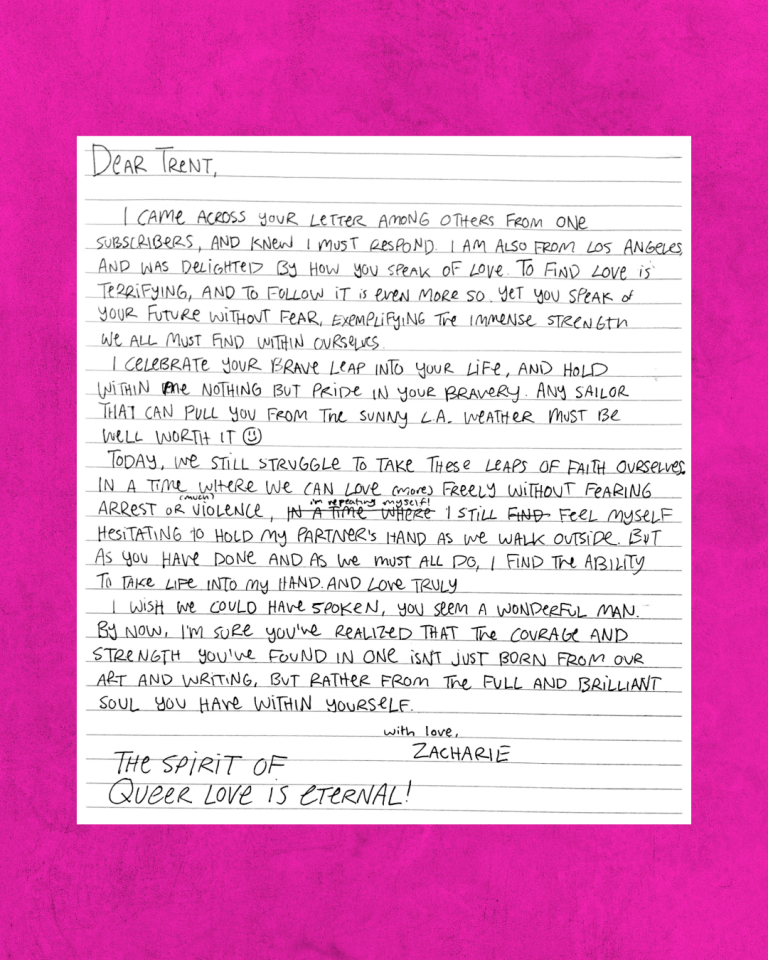 DEAR TRENT,
I CAME ACROSS YOUR LETTER AMONG OTHERS FROM ONE
SUBSCRIBERS, AND KNEW I MUST RESPOND. I AM ALSO FROM LOS ANGELES
AND WAS DELIGHTED BY HOW YOU SPEAK OF LOVE. TO FIND LOVE IS
TERRIFYING, AND TO FOLLOW IT IS EVEN MORE SO. YET YOU SPEAK of
YOUR FUTURE WITHOUT FEAR, EXEMPLIFYING THE IMMENSE STRENGTH
WE ALL MUST FIND WITHIN OURSELVES.
I CELEBRATE YOUR BRAVE LEAP INTO YOUR LIFE, AND HOLD
WITHIN ME NOTHING BUT PRIDE IN YOUR BRAVERY. ANY SAILOR
THAT CAN PULL YOU FROM THE SUNNY L.A. WEATHER MUST BE
WELL WORTH IT ☺
TODAY, WE STILL STRUGGLE TO TAKE THESE LEAPS OF FAITH OURSELVES.
IN A TIME WHERE WE CAN LOVE (more) FREELY WITHOUT FEARING
(much) im repeating myself!
ARREST OR VIOLENCE, IN A TIME WHERE I STILL FIND FEEL MYSELF
HESITATING TO HOLD MY PARTNER'S HAND AS WE WALK OUTSIDE. BUT
AS YOU HAVE DONE AND AS WE MUST ALL DO, I FIND THE ABILITY
TO TAKE LIFE INTO MY HAND. AND LOVE TRULY
I WISH WE COULD HAVE SPOKEN, YOU SEEM A WONDERFUL MAN.
BY NOW, I'M SURE YOU'VE REALIZED THAT THE COURAGE AND
STRENGTH YOU'VE FOUND IN ONE ISN'T JUST BORN FROM OUR
ART AND WRITING, BUT RATHER FROM THE FULL AND BRILLIANT
SOUL YOU HAVE WITHIN YOURSELF.
with love,
ZACHARIE
THE SPIRIT OF
QUEER LOVE IS ETERNAL!